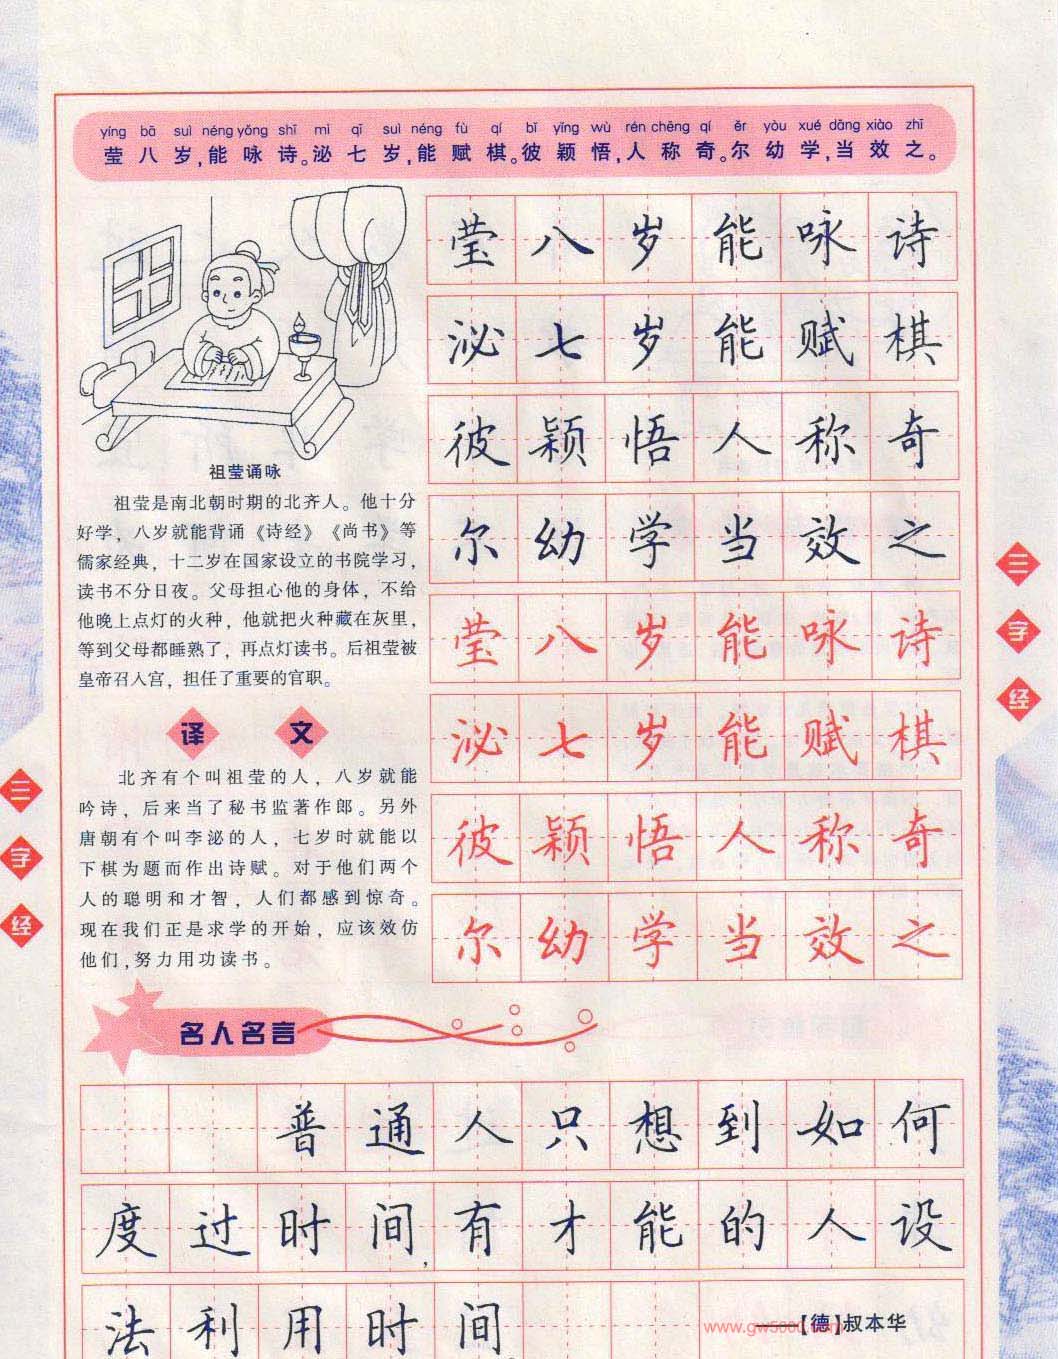 yíng bā suì néng yǒng shī mì qī suì néng fù qí bǐ yǐng wù rén chēng qí ěr yòu xué dāng xiào zhī
莹八岁,能咏诗。泌七岁,能赋棋。彼颖悟,人称奇。尔幼学,当效之。
莹八岁能咏诗
泌七岁能赋棋
彼颖悟人称奇
尔幼学当效之
莹八岁能咏诗
泌七岁能赋棋
彼颖悟人称奇
尔幼学当效之
祖莹诵咏
祖莹是南北朝时期的北齐人。他十分
好学，八岁就能背诵《诗经》《尚书》等
儒家经典，十二岁在国家设立的书院学习，
读书不分日夜。父母担心他的身体，不给
他晚上点灯的火种，他就把火种藏在灰里，
等到父母都睡熟了，再点灯读书。后祖莹被
皇帝召入宫，担任了重要的官职。
译文
北齐有个叫祖莹的人，八岁就能
吟诗，后来当了秘书监著作郎。另外
唐朝有个叫李泌的人，七岁时就能以
下棋为题而作出诗赋。对于他们两个
人的聪明和才智，人们都感到惊奇。
现在我们正是求学的开始，应该效仿
他们,努力用功读书。
三字经
三字经
名人名言
普通人只想到如何
度过时间，有才能的人设
法利用时间。
——【德】叔本华